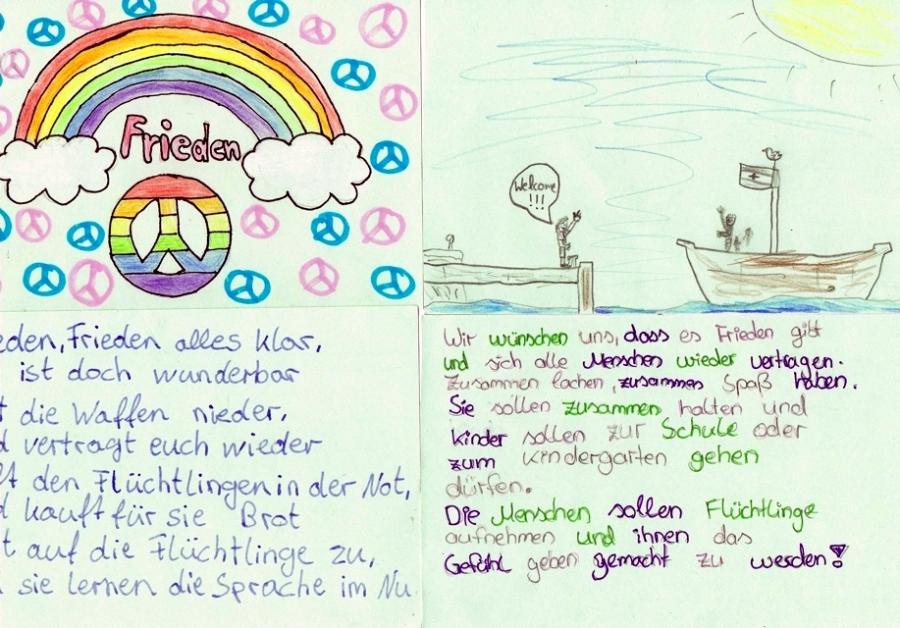 Frieden
Welcome
!!!
eden, Frieden alles klar,
ist doch wunderbar
t die Waffen nieder,
d vertragt euch wieder
ft den Flüchtlingen in der Not,
d kauft für sie Brot
t auf die Flüchtlinge zu,
sie lernen die Sprache im Nu.
Wir wünschen uns, dass es Frieden gibt
und sich alle Menschen wieder vertragen.
Zusammen lachen, zusammen Spaß haben.
Sie sollen zusammen halten und
kinder sollen zur Schule oder
zum kindergarten gehen
dürfen.
Die Menschen sollen Flüchtlinge
aufnehmen und ihnen das
Gefühl geben gemocht zu werden!